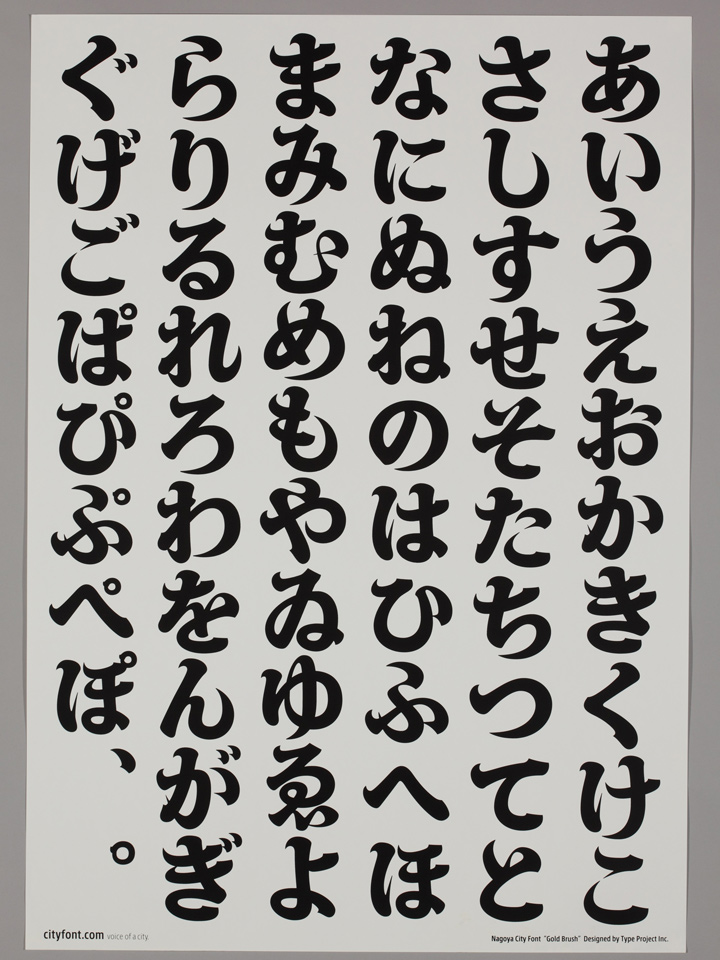 あいうえおかきくけこ
さしすせそたちつてと
なにぬねのはひふへほ
まみむめもやゐゆゑよ
らりるれろわをんがぎ
ぐげごぱぴぷぺぽ、。
cityfont.com voice of a city
Nagoya City Font "Gold Brush" Designed by Type Project Inc.